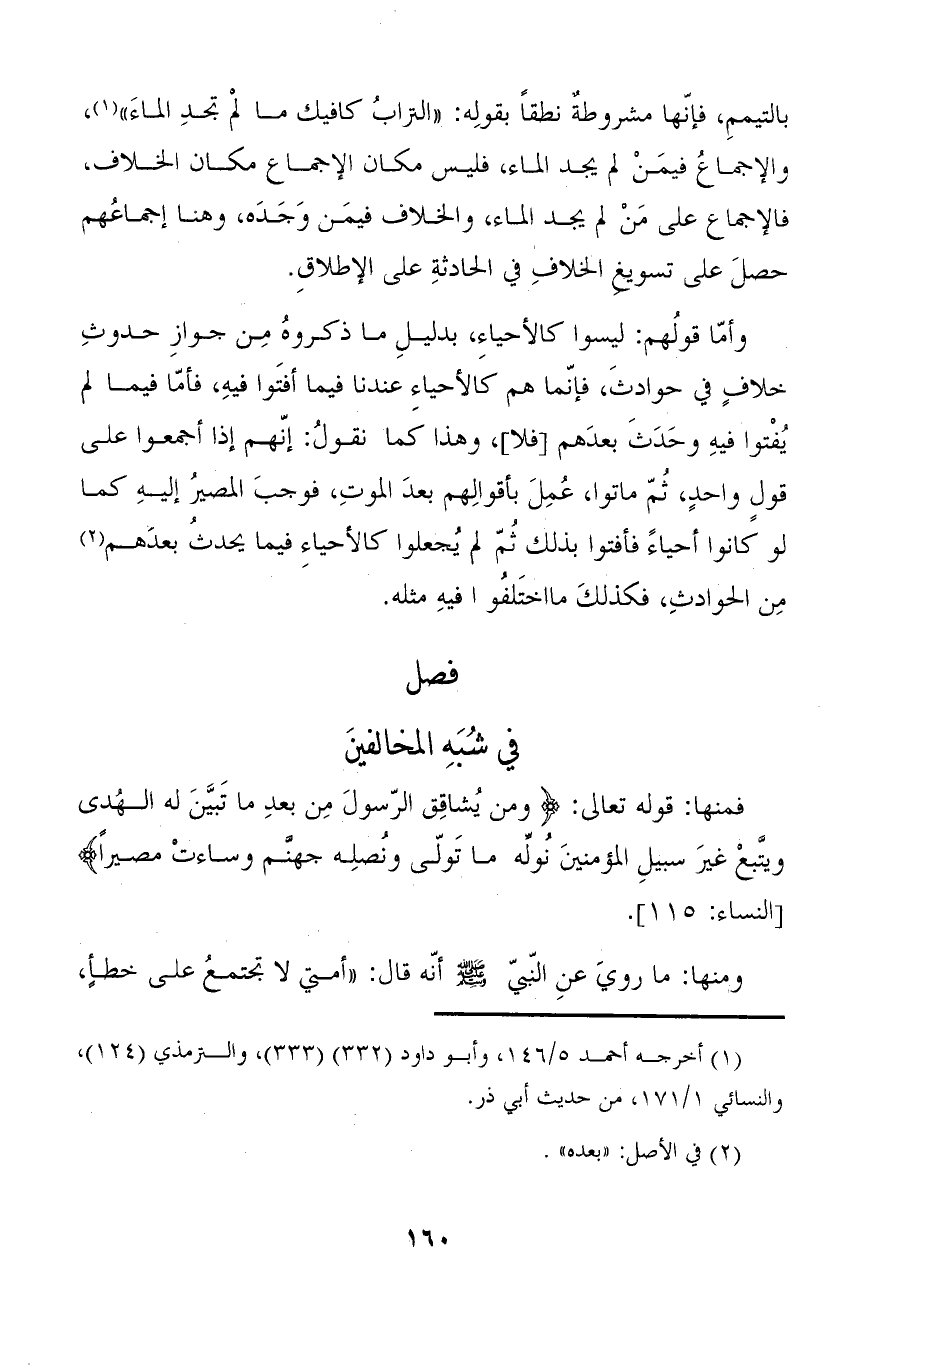 بالتيممِ، فإنّها مشروطةٌ نطقاً بقولِه: «الترابُ كافيك ما لمْ تجدِ الماءَ»(١)،
والإجماعُ فيمَنْ لم يجد الماء، فليس مكان الإجماع مكان الخلاف،
فالإجماع على مَنْ لم يجد الماء، والخلاف فيمَن وَجَدَه، وهنا إجماعُهم
حصلَ على تسويغِ الخلافِ في الحادثةِ على الإطلاقِ.
وأمّا قولُهم: ليسوا كالأحياءِ، بدليلِ ما ذكروهُ مِن جوازِ حدوثِ
خلافٍ في حوادثَ، فإنّما هم كالأحياءِ عندنا فيما أفتَوا فيهِ، فأمّا فيما لم
يُفْتوا فيهِ وحَدَثَ بعدَهم [فلا]، وهذا كما نقولُ: إنّهم إذا أجمعوا على
قولٍ واحدٍ، ثُمّ ماتوا، عُمِلَ بأقوالِهم بعدَ الموتِ، فوجبَ المصيرُ إليهِ كما
لو كانوا أحياءً فأفتوا بذلك ثُمّ لم يُجعلوا كالأحياءِ فيما يحدثُ بعدَهم(٢)
مِن الحوادثِ، فكذلكَ مااختَلَفُو ا فيهِ مثله.
فصل
في شُبَهِ المخالفينَ
فمنها: قوله تعالى: ﴿ومن يُشاقِق الرّسولَ مِن بعدِ ما تَبيَّنَ له الهُدى
ويتَّبعْ غيرَ سبيلِ المؤمنينَ نُولّه ما تَولّى ونُصلِه جهنَّم وساءتْ مصيراً﴾
[النساء: ١١٥].
ومنها: ما رويَ عنِ النّبيّ ﷺ أنّه قال: «أمتي لا تجتمعُ على خطأٍ،
(١) أخرجه أحمد ١٤٦/٥، وأبو داود (٣٣٢) (٣٣٣)، والترمذي (١٢٤)،
والنسائي ١٧١/١، من حديث أبي ذر.
(٢) في الأصل: «بعده» .
١٦٠